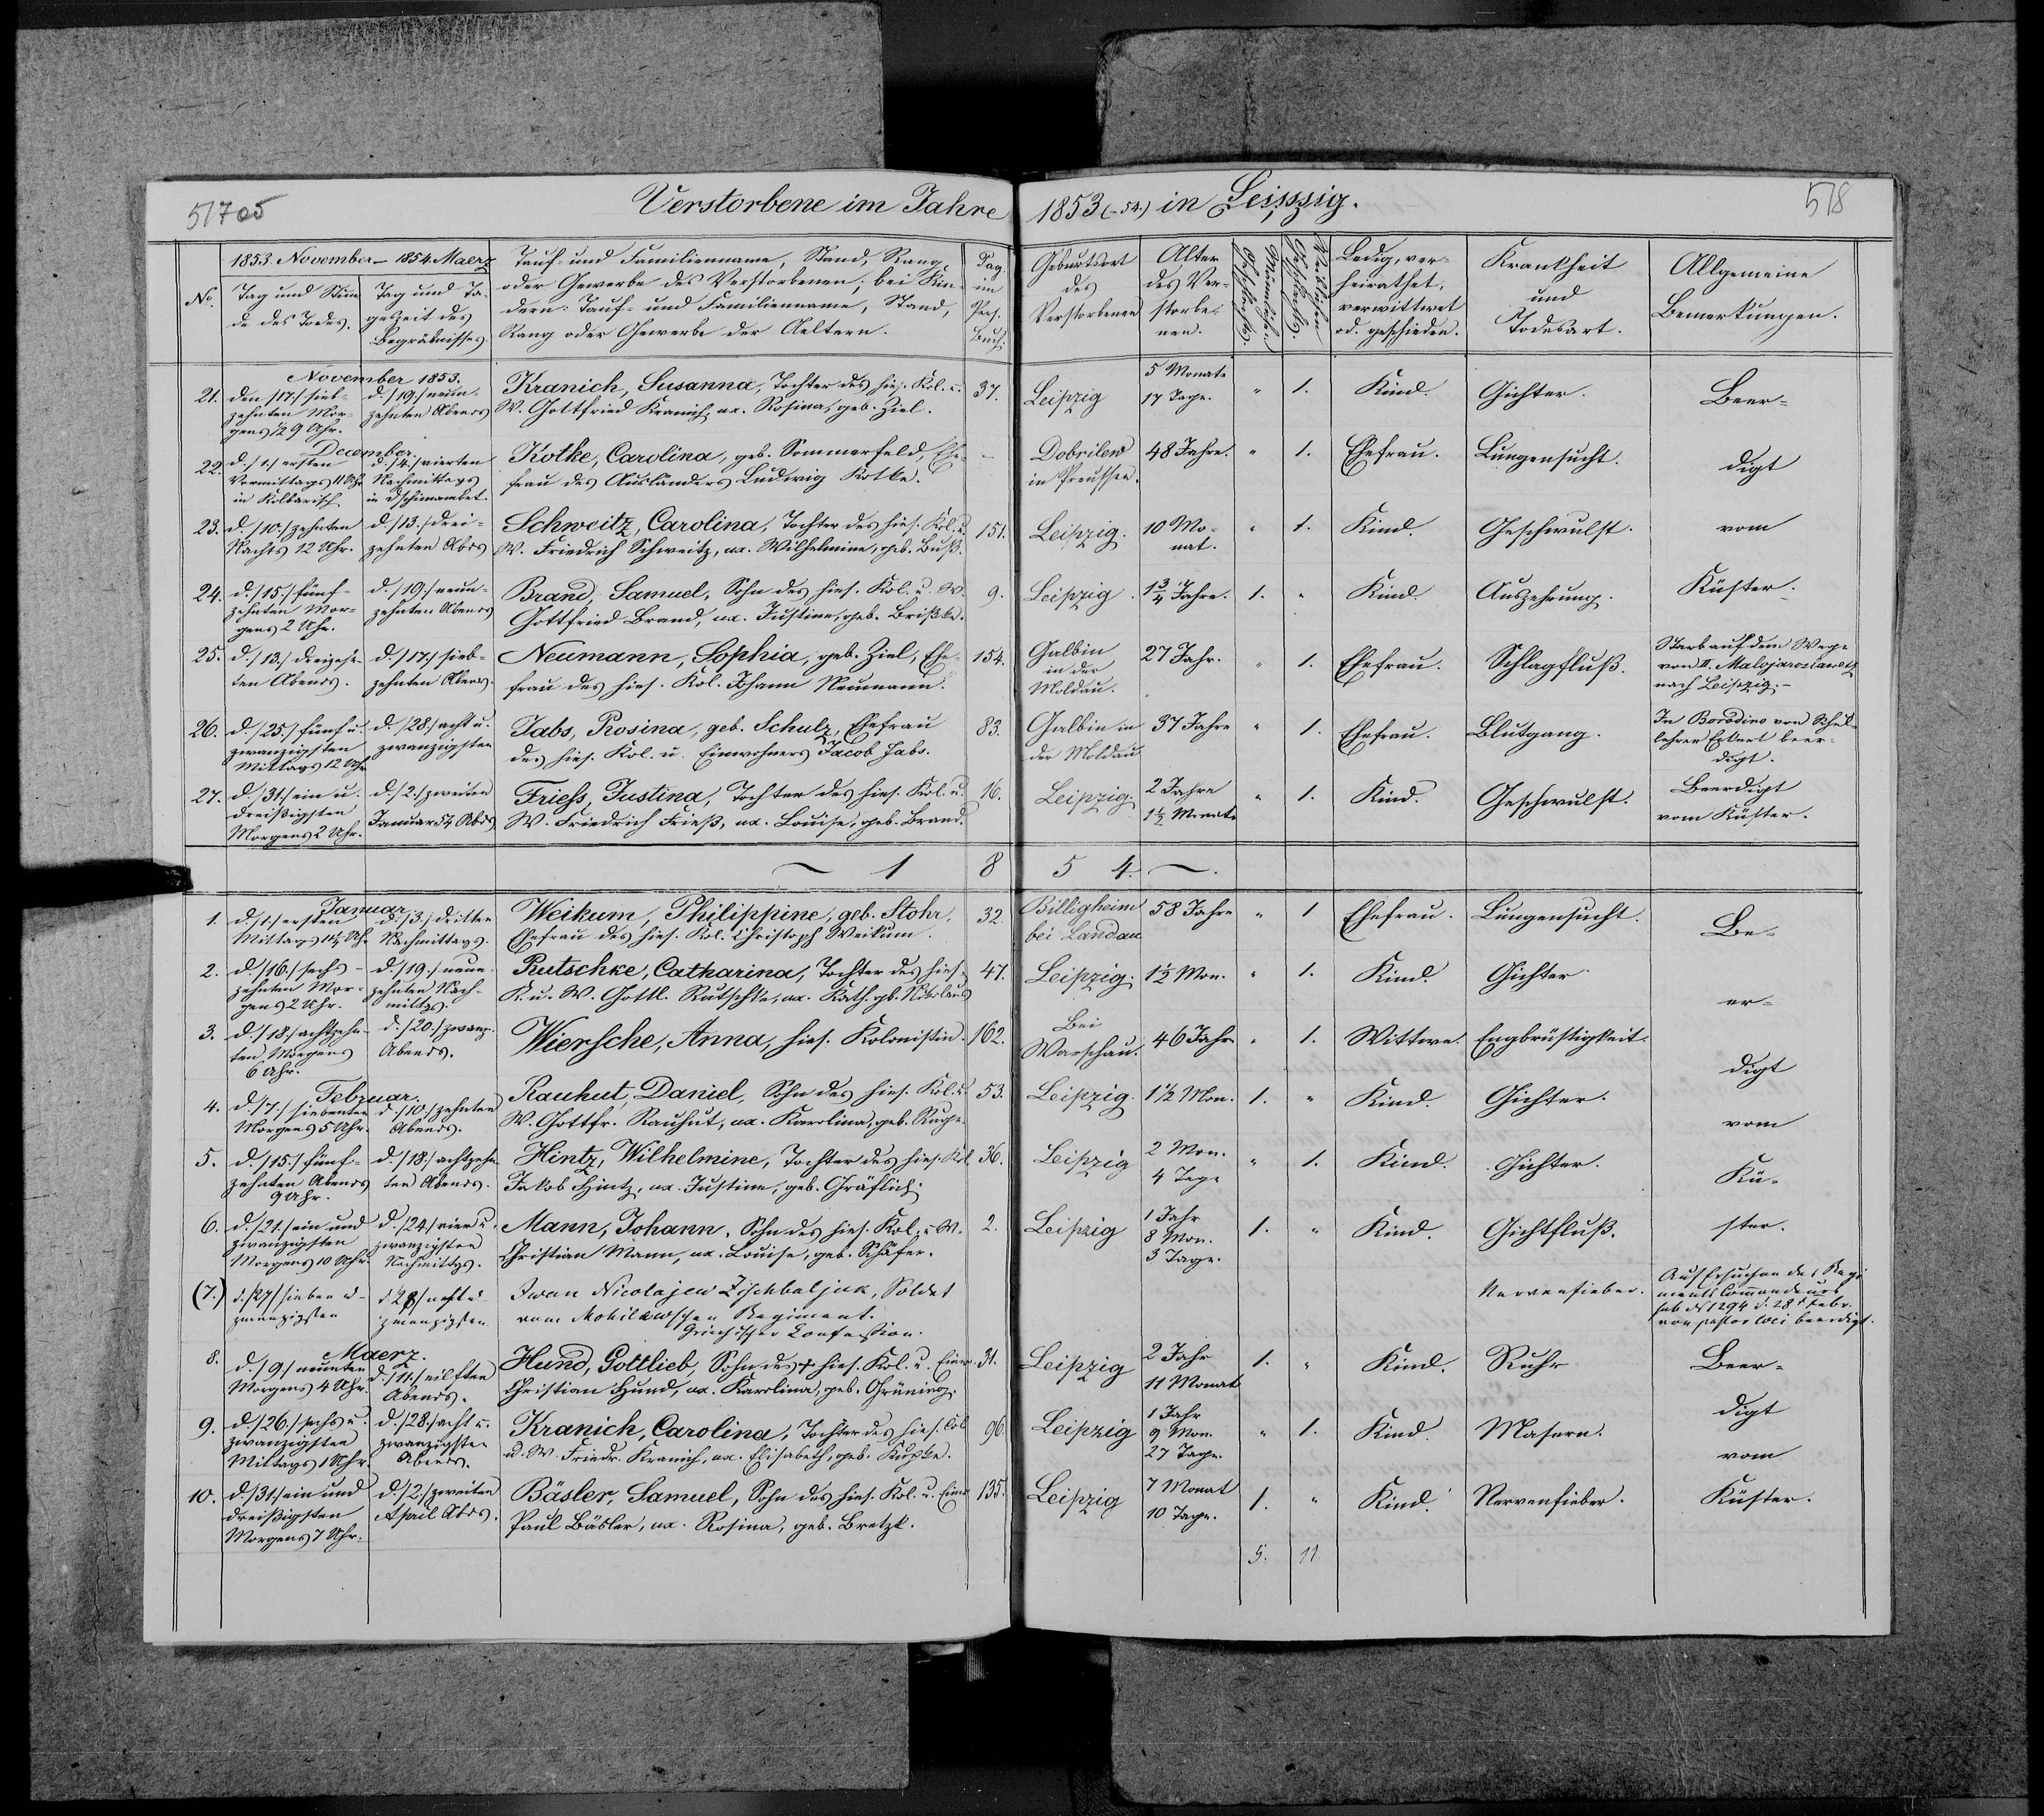 51705
Verstorbene im Jahre 1853 (-54.) in Leipzig.
518
No.
1853. November – 1854. Maerz
Tag und Stun-
de des Todes.
Tag und Ta-
geszeit des
Begräbnisses.
Tauf- und Familienname, Stand, Rang
oder Gewerbe des Verstorbenen; bei Kin-
dern: Tauf- und Familienname, Stand,
Rang oder Gewerbe der Aeltern.
Pag.
im
Pers.
Buch.
Geburtsort
des
Verstorbenen
Alter
des Ver-
storbe-
nen.
Männlichen
Geschlechts.
Weiblichen
Geschlechts.
Ledig, ver-
heirathet,
verwittwet
od. geschieden.
Krankheit
und
Todesart.
Allgemeine
Bemerkungen.
November 1853.
21. den /17./ sieb-
zehnten Mor-
gens ½ 9 Uhr.
d. /19./ neun-
zehnten Abends
Kranich, Susanna, Tochter des hies. Kol. u.
W. Gottfried Kranich, ux. Rosina, geb. Ziel.
37.
Leipzig
5 Monate
17 Tage.
" 1. Kind. Gichter. Beer-
December.
22. d. /1./ ersten
Vormittags 11 Uhr
in Koldarisch
d. /4./ vierten
Nachmittags
in Dschimambet.
Kotke, Carolina, geb. Sommerfeld, Ehe-
frau des Ausländers Ludwig Kotke.
–
Dobrilew
in Preußen.
48 Jahre. " 1. Ehefrau. Lungensucht. digt
23. d. /10./ zehnten
Nachts 12 Uhr.
d. /13./ drei-
zehnten Abds
Schweitz, Carolina, Tochter des hies. Kol. u.
W. Friedrich Schweitz, ux. Wilhelmine, geb. Buß.
151.
Leipzig.
10 Mo-
nat.
" 1. Kind. Geschwulst. vom
24. d. /15./ fünf-
zehnten Mor-
gens 2 Uhr.
d. /19./ neun-
zehnten Abends
Brand, Samuel, Sohn des hies. Kol. u. W.
Gottfried Brand, ux. Justine, geb. Brißke.
9.
Leipzig. 1¾ Jahre. 1. " Kind. Auszehrung. Küster.
25. d. /13./ dreizehn-
ten Abends.
d. /17./ sieb-
zehnten Abends.
Neumann, Sophia, geb. Ziel, Ehe-
frau des hies. Kol. Johann Neumann.
154.
Galbin
in der
Moldau.
27 Jahr. " 1. Ehefrau. Schlagfluß.
Starb auf dem Wege
von II. Malojaroslawetz
nach Leipzig. –
26. d. /25./ fünf u.
zwanzigsten
Mittags 12 Uhr
d. /28./ acht u.
zwanzigsten
Jabs, Rosina, geb. Schulz, Ehefrau
des hies. Kol. u. Einwohners Jacob Jabs.
83.
Galbin in
der Moldau
37 Jahre " 1. Ehefrau. Blutgang.
In Borodino von Schul-
lehrer Eckert beer-
digt.
27. d. /31./ ein u.
dreißigsten
Morgens 2 Uhr.
d. /2./ zweiten
Januar 54 Abds
Friess, Justina, Tochter des hies. Kol. u.
W. Friedrich Frieß, ux. Louise, geb. Brand.
16.
Leipzig.
2 Jahre
1½ Monate
" 1. Kind. Geschwulst.
Beerdigt
vom Küster.
1 8 5 4.
Januar.
1. d. /1./ ersten
Mittags 11½ Uhr
d. /3./ dritten
Nachmittags.
Weikum, Philippine, geb. Stohr.
Ehefrau des hies. Kol. Christoph Weikum.
32.
Billigheim
bei Landau
58 Jahre " 1 Ehefrau. Lungensucht. Be-
2. d. /16./ sechs-
zehnten Mor-
gens 2 Uhr.
d. /19./ neun-
zehnten Nach-
mittgs.
Rutschke, Catharina, Tochter des hies.
K. u. W. Gottl. Rutschke, ux. Kath. gb. Nikolaus
47.
Leipzig. 1½ Mon. " 1. Kind. Gichter. er-
3. d. /18./ achtzehn-
ten Morgens
6 Uhr.
d. /20./ zwanz.
Abends.
Wiersche, Anna, hies. Kolonistin.
162.
Bei
Warschau.
46 Jahr " 1. Wittwe. Engbrüstigkeit. digt
Februar.
4. d. /7./ siebenten
Morgens 5 Uhr.
d. /10./ zehnten
Abends.
Rauhut, Daniel, Sohn des hies. Kol. u.
W. Gottfr. Rauhut, ux. Karolina, geb. Ruge.
53.
Leipzig. 1½ Mon. 1. " Kind. Gichter. vom
5. d. /15./ fünf-
zehnten Abends
9 Uhr.
d. /18./ achtzehn-
ten Abends.
Hintz, Wilhelmine, Tochter des hies. Kol.
Jakob Hintz, ux. Justine, geb. Gräflich.
36.
Leipzig
2 Mon.
4 Tage
" 1. Kind. Gichter. Kü-
6. d. /21./ ein und
zwanzigsten
Morgens 10 Uhr.
d. /24./ vier u.
zwanzigsten
Nachmittgs.
Mann, Johann, Sohn des hies. Kol. u. W.
Christian Mann, ux. Louise, geb. Schäfer.
2.
Leipzig
1 Jahr
8 Mon.
3 Tage.
1. " Kind. Gichtfluß. ster.
(7.) d. /27/ sieben u-
zwanzigsten
d. 28/ acht u
zwanzigsten
Iwan Nicolajew Zischbaljuk, Soldat
vom Mohilewschen Regiment.
Griechischer Confession.
Nervenfieber.
Auf Ersuchen des Regi-
ments Commandeurs
sub No 1294 d. 28t Febr.
von pastor loci beerdigt.
Maerz.
8. d. /9/ neunten
Morgens 4 Uhr.
d. /11./ eilften
Abends.
Hund, Gottlieb, Sohn des † hies. Kol. u. Einw.
Christian Hund, ux. Karolina, geb. Grüning.
31.
Leipzig
2 Jahr
11 Monat
1. " Kind. Ruhr Beer-
9. d. /26./ sechs u.
zwanzigsten
Mittags 1 Uhr.
d. /28./ acht u.
zwanzigsten
Abends.
Kranich, Carolina, Tochter des hies. Col.
u. W. Friedr. Kranich, ux. Elisabeth, geb. Kupke.
96.
Leipzig
1 Jahr
9 Mon.
27 Tage.
" 1. Kind. Masern. digt
vom
10. d. /31./ ein und
dreißigsten
Morgens 7 Uhr.
d. /2./ zweiten
April Abds.
Bäsler, Samuel, Sohn des hies. Kol. u. Einw.
Paul Bäsler, ux. Rosina, geb. Bretzk.
135.
Leipzig
7 Monat
10 Tage.
1. " Kind. Nervenfieber. Küster.
5. 11